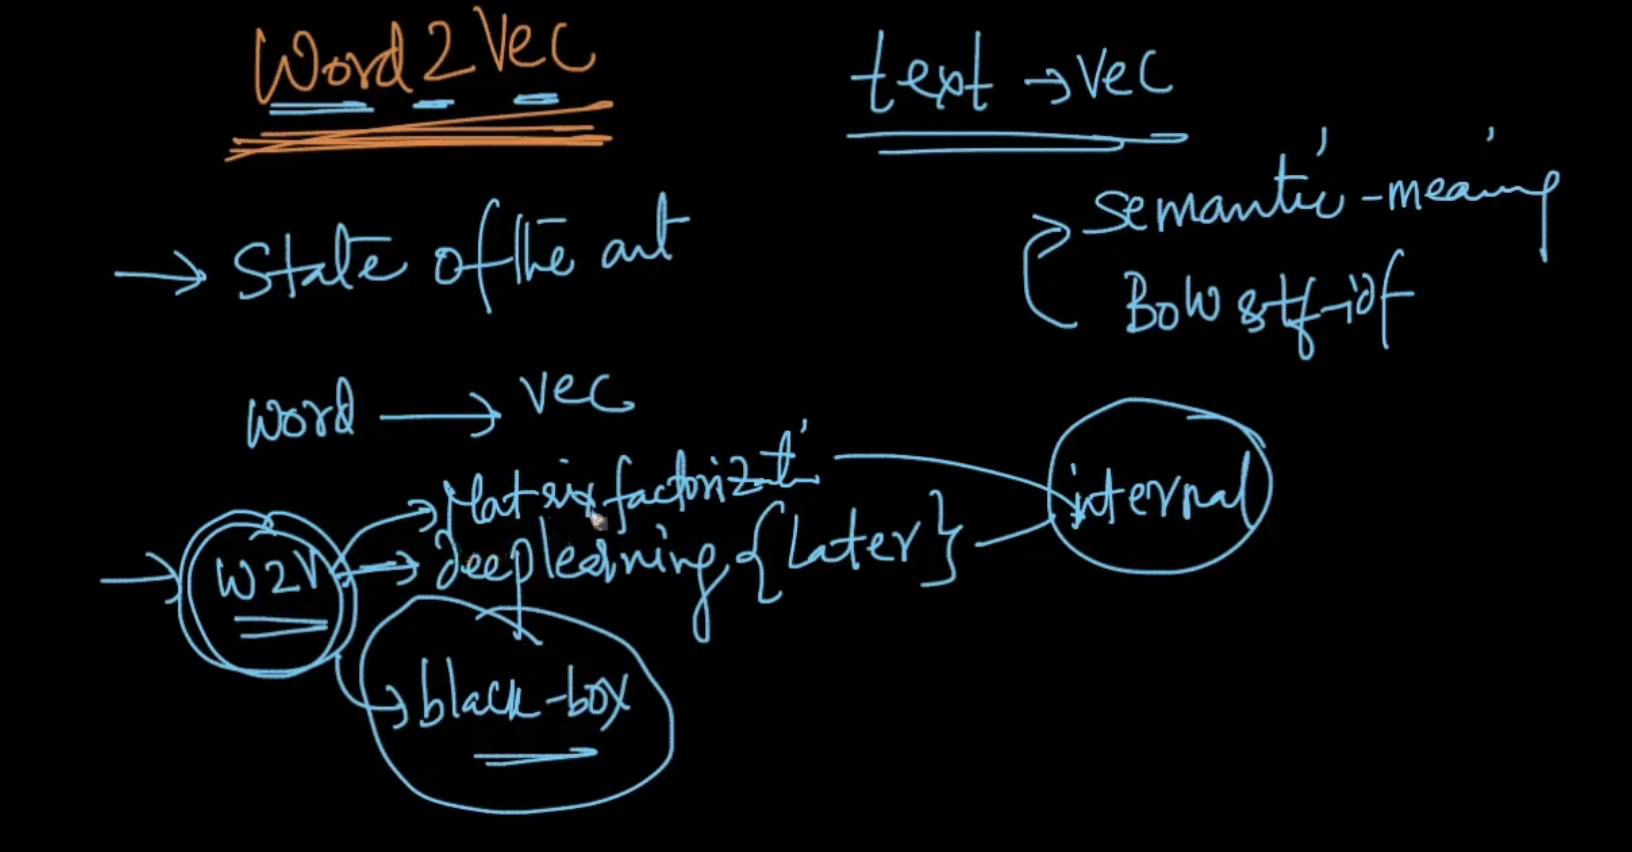 Word2Vec
text → vec
→ State of the art
semantic-meaning
BOW & tf-idf
word → vec
Matrix factorizatn
internal
deep learning {Later}
→ W2V
black-box